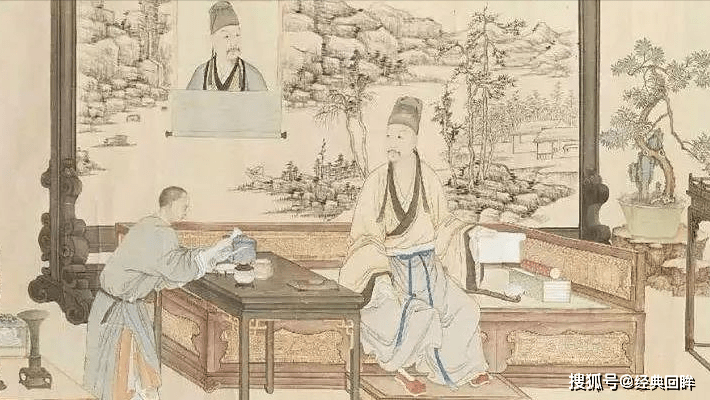 搜狐号@经典回眸